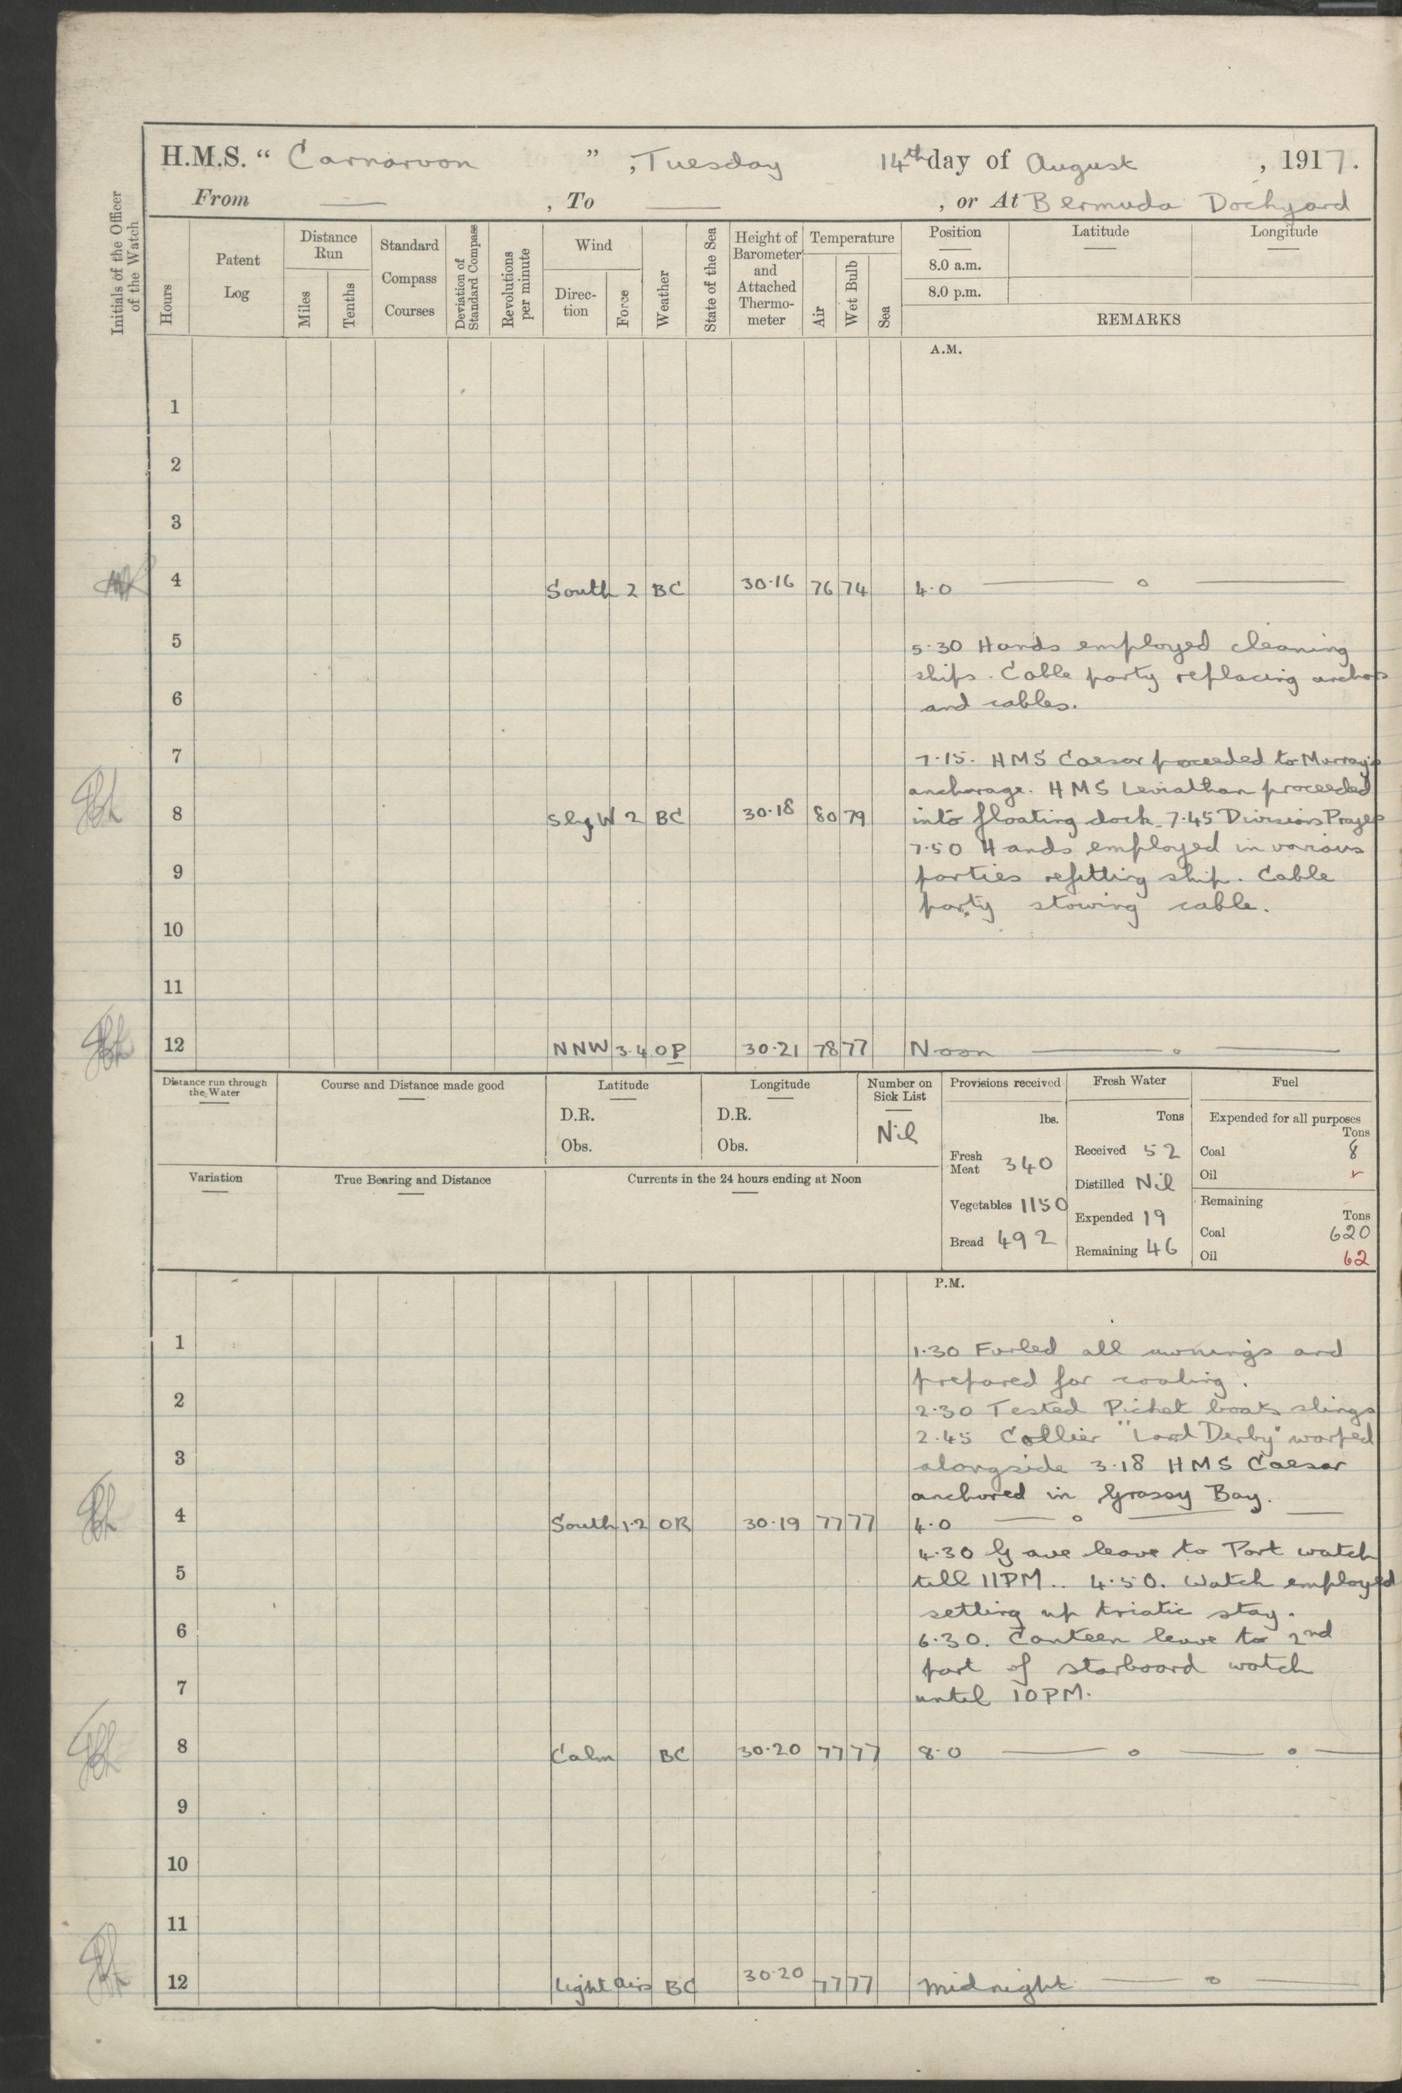 H.M.S. “ Carnarvon ” , Tuesday 14th day of August , 1917.
From — , To — , or At Bermuda Dockyard
Initials of the Officer of the Watch
Hours
Patent Log
Distance Run
Miles
Tenths
Standard Compass Courses
Deviation of Standard Compass
Revolutions per minute
Wind
Direc-tion
Force
Weather
State of the Sea
Height of Barometer and Attached Thermo-meter
Temperature
Air
Wet Bulb
Sea
Position Latitude Longitude
8.0 a.m.
8.0 p.m.
REMARKS
A.M.
1
2
3
4 South 2 BC 30·16 76 74 4·0 — o —
5 5·30 Hands employed cleaning
ships. Cable party replacing anchors
6 and cables.
7 7·15. HMS Caesar proceeded to Murray's
anchorage. HMS Leviathan proceeded
8 SbyW 2 BC 30·18 80 79 into floating dock. 7·45 Divisions Prayers
7·50 Hands employed in various
9 parties refitting ship. Cable
party stowing cable.
10
11
12 NNW 3·4 OP 30·21 78 77 Noon — o —
Distance run through the Water
Course and Distance made good
Latitude
D.R.
Obs.
Longitude
D.R.
Obs.
Number on Sick List
Nil
Variation
True Bearing and Distance
Currents in the 24 hours ending at Noon
Provisions received
lbs.
Fresh Meat 340
Vegetables 1150
Bread 492
Fresh Water
Tons
Received 52
Distilled Nil
Expended 19
Remaining 46
Fuel
Expended for all purposes
Tons
Coal 8
Oil
Remaining
Tons
Coal 620
Oil 62
P.M.
1 1·30 Furled all awnings and
prepared for coaling.
2 2·30 Tested Picket boats slings
2·45 Collier "Lord Derby" warped
3 alongside 3·18 HMS Caesar
anchored in Grassy Bay.
4 South 1·2 OR 30·19 77 77 4·0 — o —
4·30 Gave leave to Port watch
5 till 11PM.. 4·50. Watch employed
setting up triatic stay.
6 6·30. Canteen leave to 2nd
part of starboard watch
7 until 10PM.
8 Calm BC 30·20 77 77 8·0 — o — o —
9
10
11
12 Light airs BC 30·20 77 77 Midnight — o —